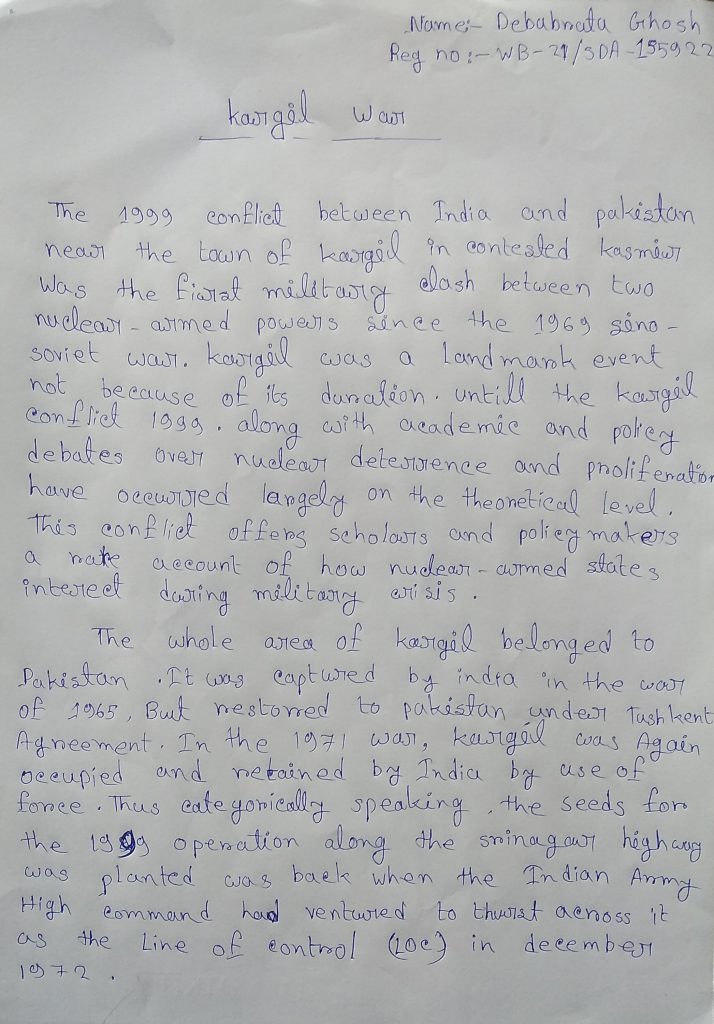 Name:- Debabrata Ghosh
Reg no :- WB-21/SDA-155922
Kargil War
The 1999 conflict between India and pakistan
near the town of kargil in contested kasmir
was the first military clash between two
nuclear-armed powers since the 1969 sino-
soviet war. kargil was a landmark event
not because of its duration. untill the kargil
conflict 1999. along with academic and policy
debates over nuclear deterrence and proliferation
have occurred largely on the theoretical level.
This conflict offers scholars and policy makers
a rare account of how nuclear-armed states
interect during military crisis.
The whole area of kargil belonged to
Pakistan. It was captured by india in the war
of 1965, But restored to pakistan under Tashkent
Agreement. In the 1971 war, kargil was Again
occupied and retained by India by use of
force. Thus categorically speaking, the seeds for
the 1999 operation along the srinagar highway
was planted was back when the Indian Army
High command had ventured to thurst across it
as the Line of control (LOC) in december
1972.